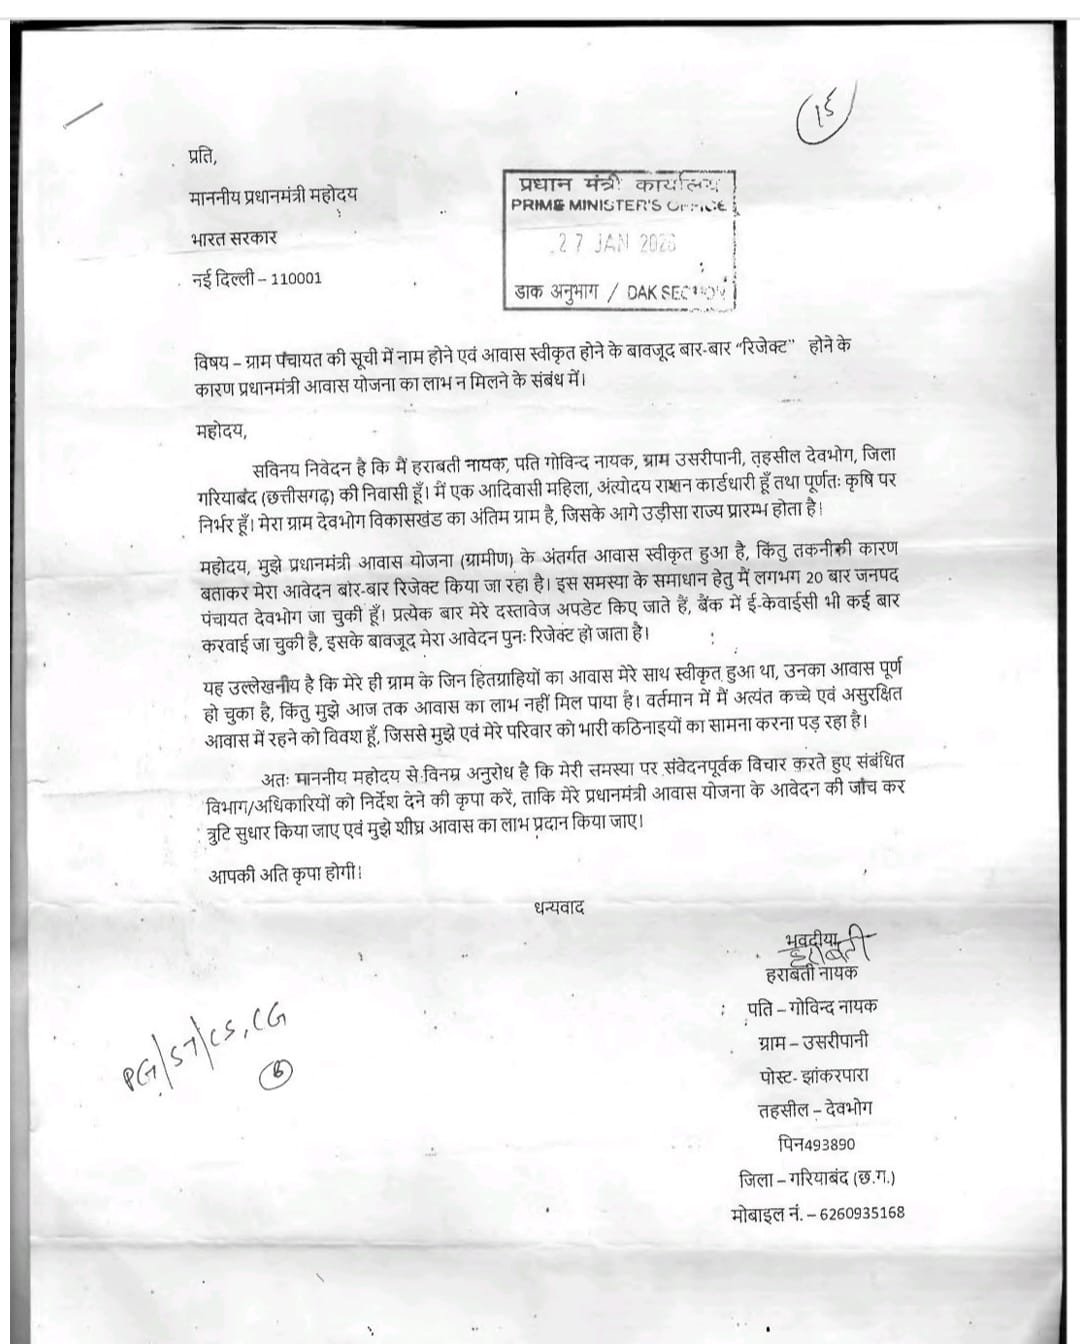 १६
प्रति,
माननीय प्रधानमंत्री महोदय
भारत सरकार
नई दिल्ली – 110001
प्रधान मंत्री कार्यालय
PRIME MINISTER'S OFFICE
27 JAN 2026
डाक अनुभाग / DAK SECTION
विषय – ग्राम पंचायत की सूची में नाम होने एवं आवास स्वीकृत होने के बावजूद बार-बार “रिजेक्ट” होने के
कारण प्रधानमंत्री आवास योजना का लाभ न मिलने के संबंध में।
महोदय,
सविनय निवेदन है कि मैं हराबती नायक, पति गोविन्द नायक, ग्राम उसरीपानी, तहसील देवभोग, जिला
गरियाबंद (छत्तीसगढ़) की निवासी हूँ। मैं एक आदिवासी महिला, अंत्योदय राशन कार्डधारी हूँ तथा पूर्णतः कृषि पर
निर्भर हूँ। मेरा ग्राम देवभोग विकासखंड का अंतिम ग्राम है, जिसके आगे उड़ीसा राज्य प्रारम्भ होता है।
महोदय, मुझे प्रधानमंत्री आवास योजना (ग्रामीण) के अंतर्गत आवास स्वीकृत हुआ है, किंतु तकनीकी कारण
बताकर मेरा आवेदन बार-बार रिजेक्ट किया जा रहा है। इस समस्या के समाधान हेतु मैं लगभग 20 बार जनपद
पंचायत देवभोग जा चुकी हूँ। प्रत्येक बार मेरे दस्तावेज अपडेट किए जाते हैं, बैंक में ई-केवाईसी भी कई बार
करवाई जा चुकी है, इसके बावजूद मेरा आवेदन पुनः रिजेक्ट हो जाता है।
यह उल्लेखनीय है कि मेरे ही ग्राम के जिन हितग्राहियों का आवास मेरे साथ स्वीकृत हुआ था, उनका आवास पूर्ण
हो चुका है, किंतु मुझे आज तक आवास का लाभ नहीं मिल पाया है। वर्तमान में मैं अत्यंत कच्चे एवं असुरक्षित
आवास में रहने को विवश हूँ, जिससे मुझे एवं मेरे परिवार को भारी कठिनाइयों का सामना करना पड़ रहा है।
अतः माननीय महोदय से विनम्र अनुरोध है कि मेरी समस्या पर संवेदनपूर्वक विचार करते हुए संबंधित
विभाग/अधिकारियों को निर्देश देने की कृपा करें, ताकि मेरे प्रधानमंत्री आवास योजना के आवेदन की जाँच कर
त्रुटि सुधार किया जाए एवं मुझे शीघ्र आवास का लाभ प्रदान किया जाए।
आपकी अति कृपा होगी।
धन्यवाद
भवदीया
हराबती
हराबती नायक
पति – गोविन्द नायक
ग्राम – उसरीपानी
पोस्ट- झांकरपारा
तहसील – देवभोग
पिन493890
जिला – गरियाबंद (छ.ग.)
मोबाइल नं. – 6260935168
PG/ST/CS, CG